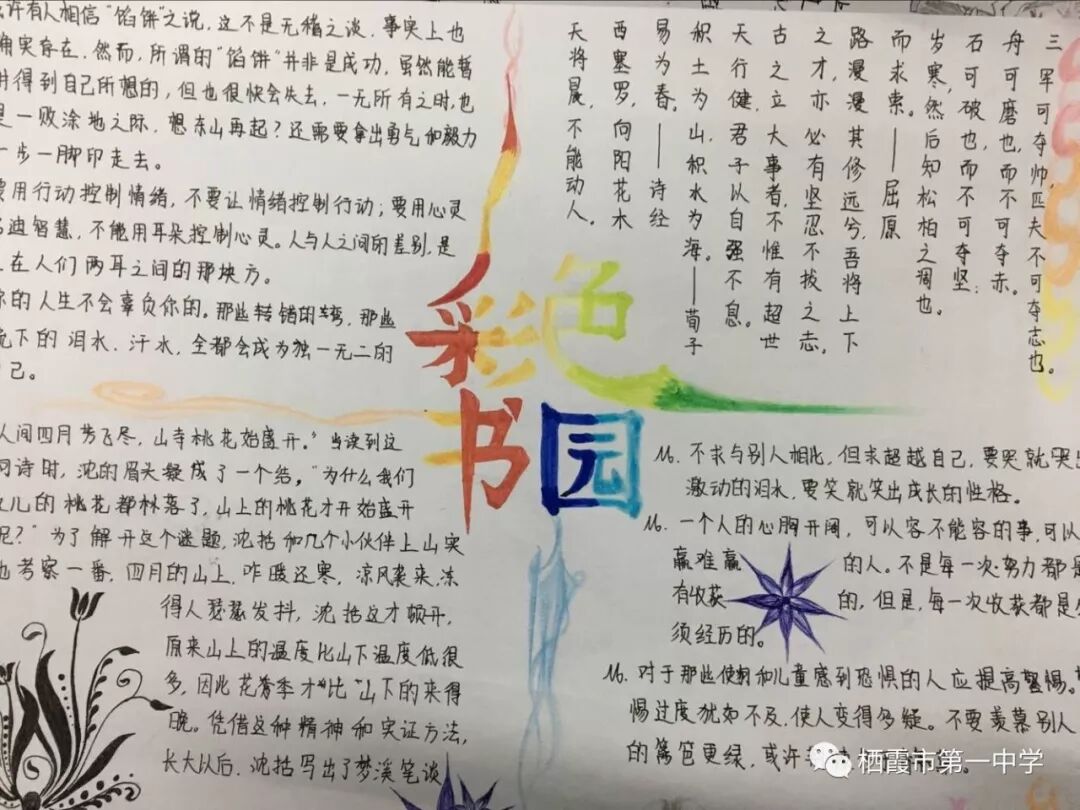 许有人相信“馅饼”之说,这不是无稽之谈.事实上也
确实存在.然而,所谓的“馅饼”并非是成功,虽然能暂
得到自己所想的,但也很快会失去,一无所有之时,也
是一败涂地之际.想东山再起?还需要拿出勇气和毅力
一步一脚印走去。
要用行动控制情绪,不要让情绪控制行动;要用心灵
迪智慧,不能用耳朵控制心灵。人与人之间的差别,是
在人们两耳之间的那块方。
你的人生不会辜负你的。那些转错的弯,那些
下的泪水.汗水,全都会成为独一无二的
己。
三军可夺帅,匹夫不可夺志也。
舟可磨也,而不可夺赤。
石可破也,而不可夺坚;
岁寒,然后知松柏之凋也。
而求索。——屈原
路漫漫其修远兮,吾将上下
之才,亦必有坚忍不拔之志,
古之立大事者,不惟有超世
天行健,君子以自强不息。
积土为山,积水为海。——荀子
易为春。——诗经
西塞罗,向阳花木
天将晨,不能动人。
彩色
书园
人间四月芳飞尽,山寺桃花始盛开。”当读到这
诗时,沈的眉头凝成了一个结,“为什么我们
儿的桃花都林落了,山上的桃花才开始盛开
呢?”为了解开这个谜题,沈括和几个小伙伴上山实
地考察一番,四月的山上,咋暖还寒,凉风袭来,冻
得人瑟瑟发抖,沈括这才顿开,
原来山上的温度比山下温度低很
多,因此花季才“比”山下的来得
晚。凭借这种精神和实证方法,
长大以后,沈括写出了梦溪笔谈
16. 不求与别人相比,但求超越自己,要哭就哭出
激动的泪水,要笑就笑出成长的性格。
16. 一个人的心胸开阔,可以容不能容的事,可以
赢难赢的人。不是每一次努力都是
有收获的,但是,每一次收获都是
须经历的。
16. 对于那些使和儿童感到恐惧的人应提高警惕。
惕过度犹如不及,使人变得多疑。不要羡慕别人
的篱笆更绿,或许
栖霞市第一中学